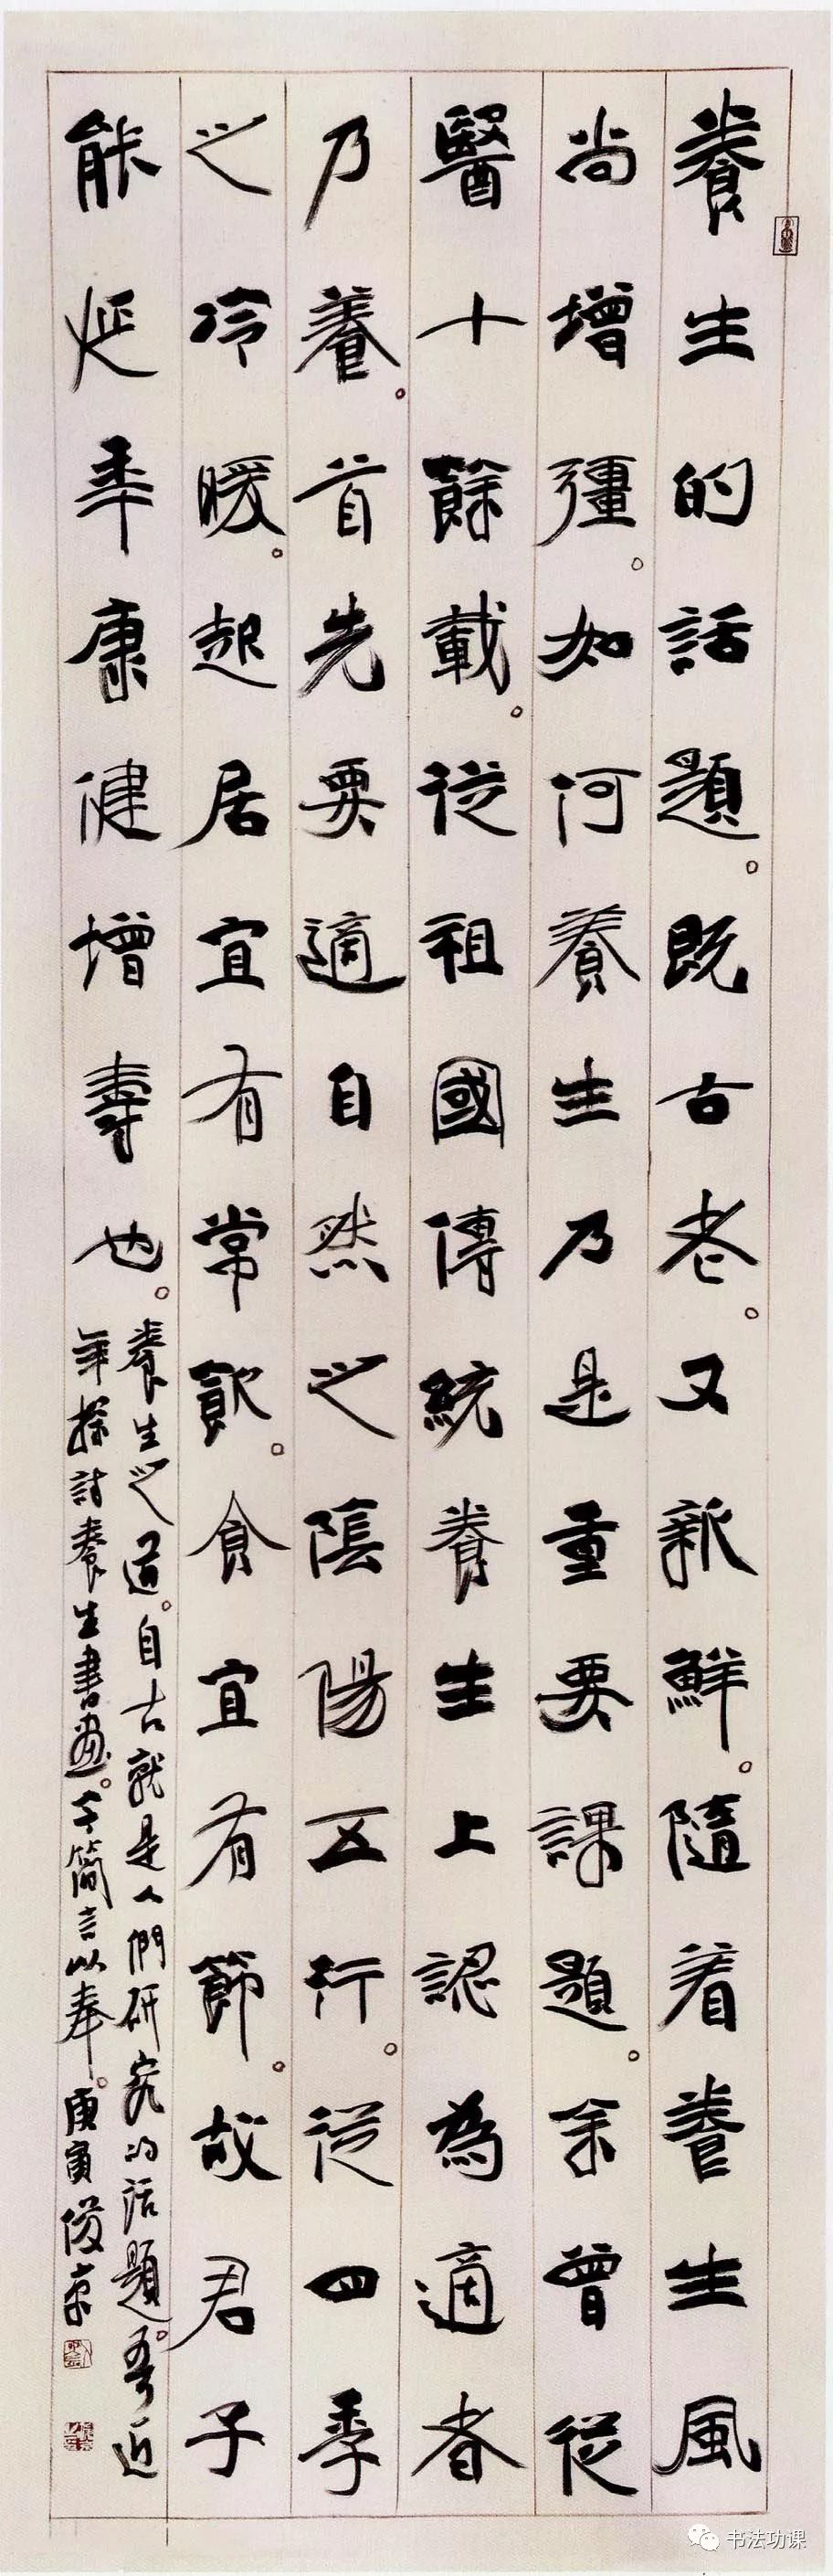 養生的話題。既古老。又新鮮。隨着養生風
尚增彊。如何養生乃是重要課題。余曾從
醫十餘載。從祖國傳統養生上認為適者
乃養。首先要適自然之陰陽五行。從四季
之冷暖。起居宜有常飲。食宜有節。故君子
能延年康健增壽也。
養生之道。自古就是人們研究的話題。吾近
年探討養生書畫。今簡言以奉。庚寅俊京
书法功课